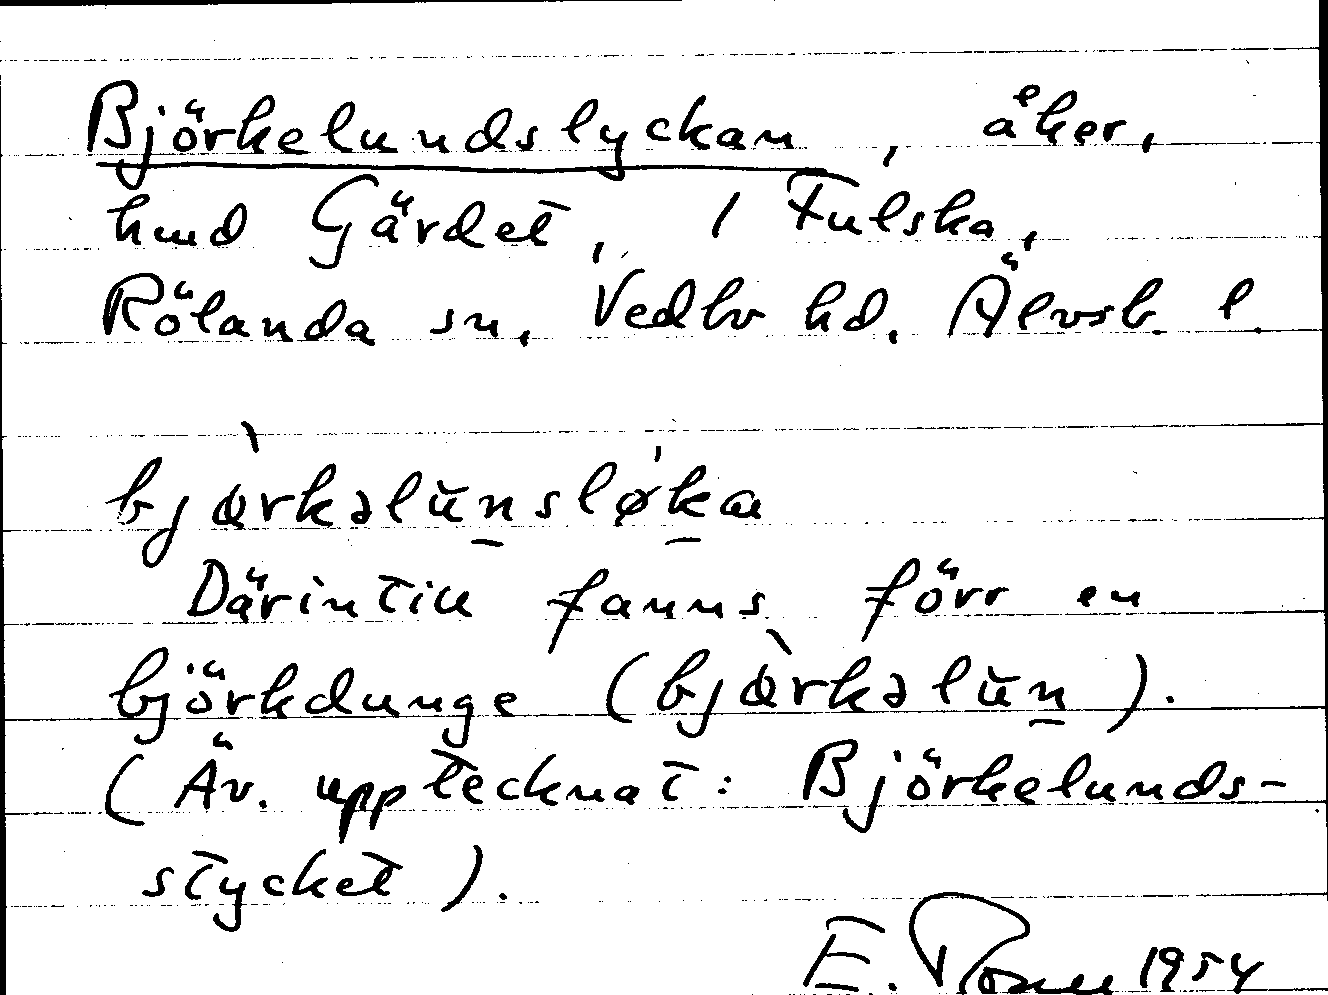 Björkelundslyckan, åker,
hmd Gärdet, 1 Fulska,
Rölanda sn, Vedbo hd. Älvsb. l.
bjò̈rkəlŭn̲sløk̲a
Därintill fanns förr en
björkdunge (bjò̈rkəlŭn̲).
(Äv. upptecknat: Björkelunds-
stycket).
E. 1954